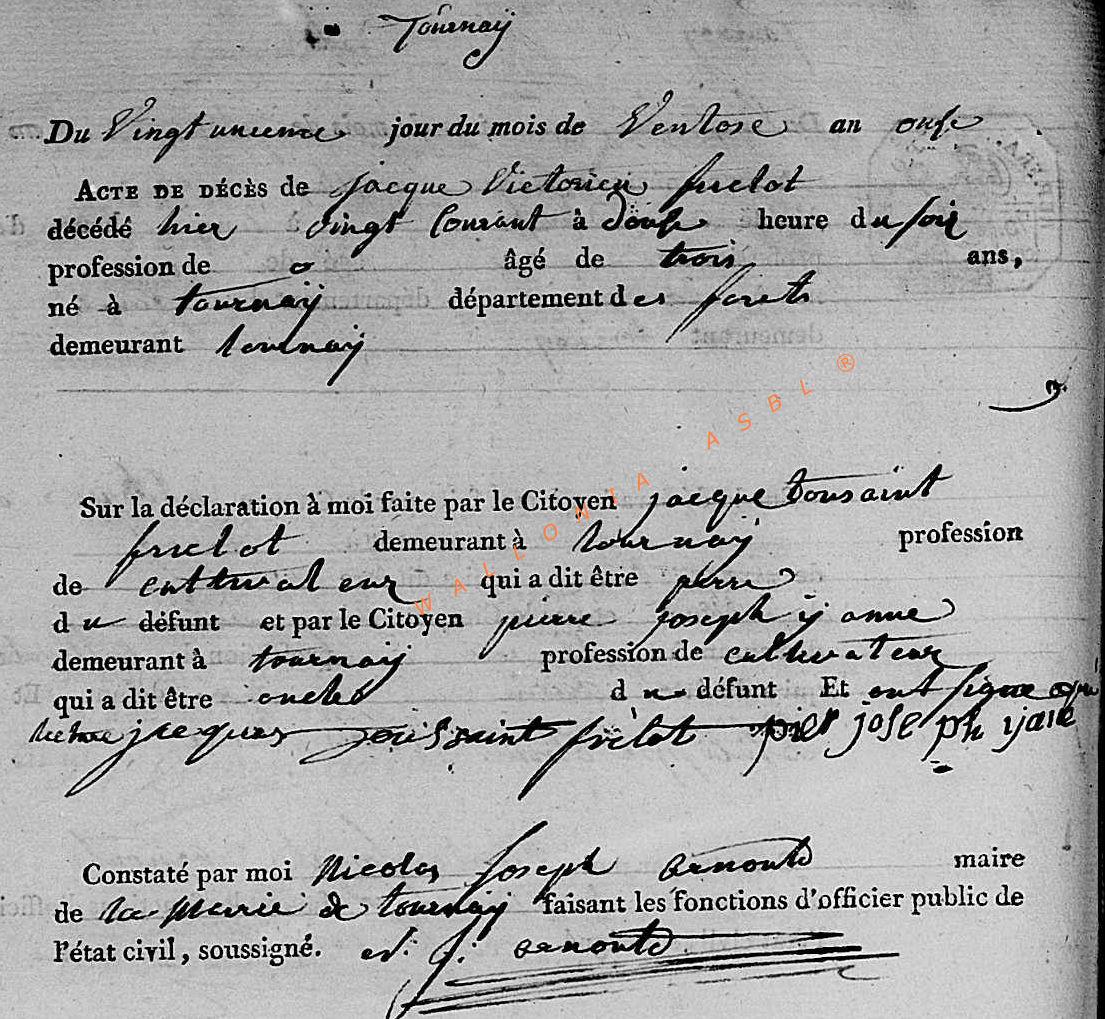 Tournaÿ
Du Vingt unieme jour du mois de Ventose an onse
ACTE DE DÉCÈS de jacque Victorien frelot
décédé hier vingt Courant à douse heure du soir
profession de o âgé de trois ans,
né à tournaÿ département des forets
demeurant tournaÿ
Sur la déclaration à moi faite par le Citoyen jacque tousaint
frelot demeurant à tournaÿ profession
de cultivateur qui a dit être perre
du défunt et par le Citoyen pierre joseph ÿ anne
demeurant à tournaÿ profession de cultivateur
qui a dit être oncles du défunt Et ont signe apre
lecture jacques toussaint frelot pier joseph
Constaté par moi Nicolas Joseph arnould maire
de la Merie de tournaÿ faisant les fonctions d'officier public de
l'état civil, soussigné. N. J. arnould
WALLONIA ASBL ®